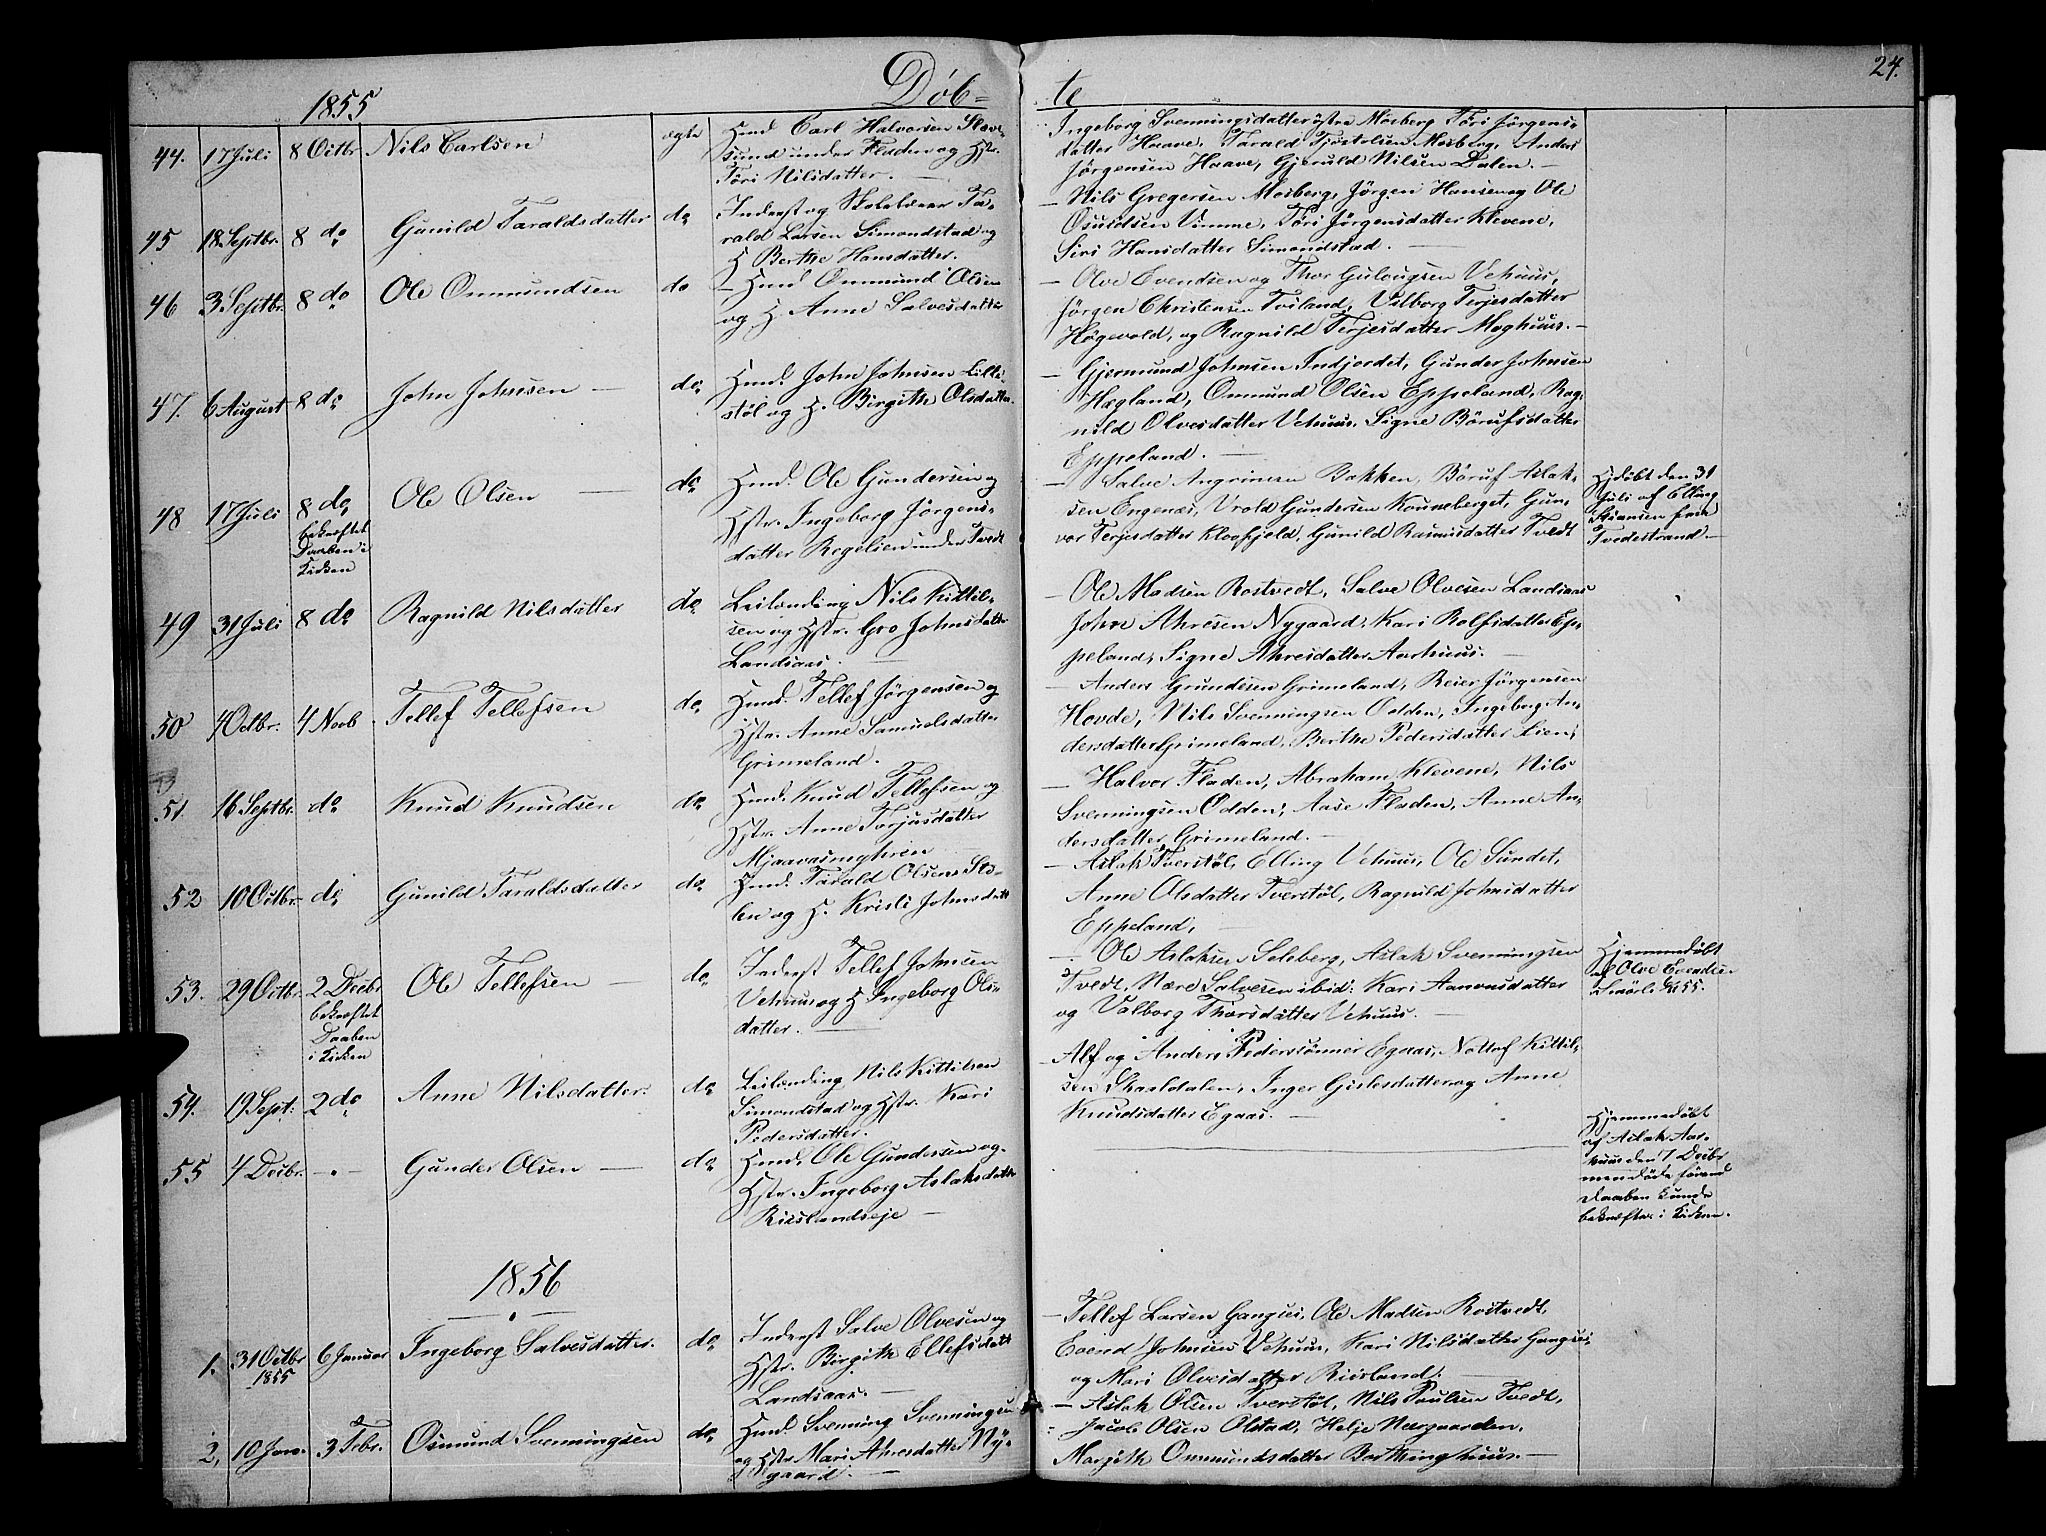 24.
1855
Döb-
te
44. 17 Juli 8 Octbr Nils Carlsen ægte Gmd. Carl Halvorsen
sund under Fladen og Hstr.
Töri Nilsdatter. —
Ingeborg Svenningsdatter östre Mosberg, Töri Jörgens-
datter Haave, Tarald Tjöstolsen Mosberg, Anders
Jörgensen Haave, Gjeruld Nilsen Dalen. —
45 18 Septbr. 8 do Gunild Taraldsdatter do Inderst og Skolelærer Ta-
rald Larsen Simonstad og
H. Berthe Hansdatter.
— Nils Gregersen Mosberg, Jörgen Hansen og Ole
Osuldsen Vimme, Töri Jörgensdatter Klevene,
Siri Hansdatter Simonstad. —
46 3 Septbr. 8 do Ole Ommundsen do — Gmd Ommund Olsen
og H. Anne Salvesdatter
— Olve Evendsen og Thor Gulougsen Vehuus,
Jörgen Christensen Tviland, Valborg Terjesdatter
Högevold, og Ragnild Terjesdatter Moghuus. —
47. 6 August 8 do John Johnsen — do. Gmd. John Johnsen Lille-
stöl og H. Birgith Olsdatter.
— Gjermund Johnsen Indjordet, Gunder Johnsen
Hægland, Ommund Olsen Eppeland, Rag-
nild Olvesdatter Vehuus, Signe Börufsdatter
Eppeland. —
48 17 Juli 8 do
bekræftet
Daaben i
Kirken
Ole Olsen — do Gmd. Ole Gundersen og
Hstr. Ingeborg Jörgens-
datter under Tvedt
— Salve Angrimsen Bakken, Böruf Aslak-
sen Engenæs, Vrold Gundersen Kouneberget, Gun-
vor Terjesdatter Gunild Rasmusdatter Tvedt
Hjdöbt den 31
Juli af Elling
fra
Tvedestrand —
49 31 Juli 8 do Ragnild Nilsdatter do Leilænding Nils Kittil-
sen og Hstr. Gro Johnsdatter
Landsaas. —
— Ole Madsen Rostvedt, Salve Olvesen Landsaas
John Ahresen Nygaard, Kari Rolfsdatter Ep-
peland, Signe Ahresdatter Aarhuus. —
50 4 Octbr. 4 Novb. Tellef Tellefsen do. Gmd. Tellef Jörgensen og
Hstr. Anne Samuelsdatter
Grimeland.
— Anders Grundesen Grimeland, Reier Jörgensen
Hovde, Nils Svenningsen Odden, Ingeborg An-
dersdatter Grimeland, Berthe Pedersdatter Lien,
51. 16 Septbr. do Knud Knudsen do. Gmd. Knud Tellefsen og
Hstr. Anne Torjusdatter
Mjaavasmyhren
— Halvor Fladen, Abraham Klevene, Nils
Svenningsen Odden, Aase Fladen, Anne An-
dersdatter Grimeland. —
52 10 Octbr. do Gunild Taraldsdatter do. Gmd. Tarald Olsen
og H. Kristi Johnsdatt
— Aslak Tverstöl, Elling Vehuus, Ole Sundet,
Anne Olsdatter Tverstöl, Ragnild Johnsdatter
Eppeland, —
53. 29 Octbr. 2 Decbr
bekræftet
Daaben
i Kirken
Ole Tellefsen — do. Inderst Tellef Johnsen
Vehuus og H Ingeborg Ols-
datter. —
— Ole Aslaksen Selsberg, Aslak Svenningsen
Tvedt, Nære Salvesen ibid: Kari Aanonsdatter
og Valborg Thorsdatter Vehuus. —
Hjemmedöbt
af Olve Evendsen
54. 19 Sept. 2 do Anne Nilsdatter. do Leilænding Nils Kittilsen
Simonstad og Hstr. Kari
Pedersdatter.
— Alf og Anders Pederssönner Egaas, Nottof Kittil-
sen Skaaldalen, Inger Gislesdatter og Anne
Knudsdatter Egaas. —
55 4 Decbr. -.- Gunder Olsen — do. Gmd. Ole Gundersen og
Hstr. Ingeborg Aslaksdatt
Riislandseje —
Hjemmedöbt
af Aslak Aar-
huus den 7 Decbr
men döde förend
Daaben kunde
bekræftes i Kirken.
1856
1. 31 Octbr
1855
6 Januar Ingeborg Salvesdatter. do Inderst Salve Olvesen og
Hstr. Birgith Ellefsdatt
Landsaas. —
— Tellef Larsen Gangsei, Ole Madsen Rostvedt,
Evend Johnsen Vehuus, Kari Nilsdatter Gangsei,
og Mari Olvesdatter Riisland.
2, 10 Jan. 3 Febr. Osmund Svenningsen do. Gmd Svenning Svenningsen
og Hstr. Mari Ahresdatter Ny-
gaard. —
— Aslak Olsen Tverstöl, Nils Poulsen Tvedt,
Jacob Olsen Olstad, Helje Nærgaarden,
Margith Ommundsdatter Borthinghuus. —